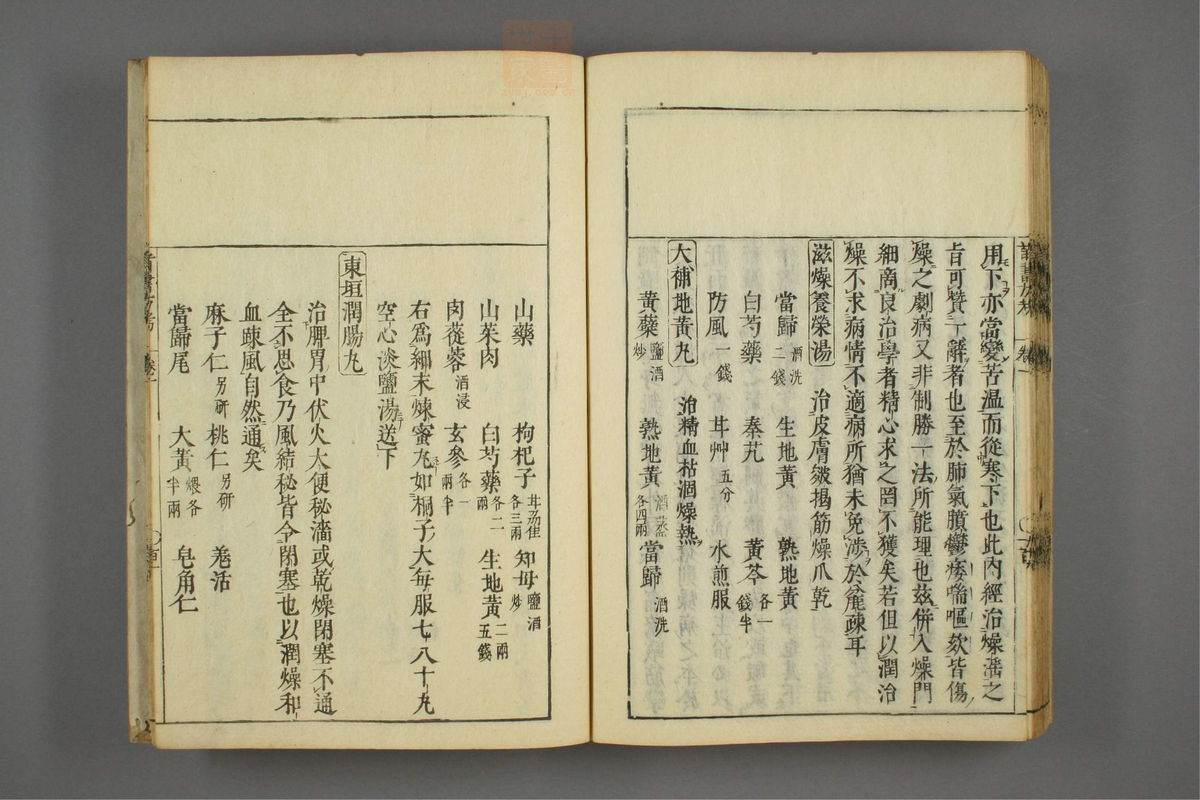 用下亦當變苦温而從寒下也此内經治燥滛之
旨可賛一辭者也至於肺氣膹鬱痿喘嘔欬皆傷
燥之劇病又非制勝一法所能理也茲併入燥門
細商良治學者精心求之罔不獲矣若但以潤治
燥不求病情不適病所猶未免涉於麄疎耳
滋燥養榮湯 治皮膚皴揭筋燥爪乾
當歸酒洗二錢 生地黄 熟地黄
白芍藥 秦艽 黄芩各一錢半
防風一錢 甘艸五分 水煎服
大補地黄丸 治精血枯涸燥熱
黄蘗鹽酒炒 熟地黄酒蒸各四兩 當歸酒洗
山藥 枸杞子甘州佳各三兩 知母鹽酒炒
山茱肉 白芍藥各二兩 生地黄二兩五錢
肉蓯蓉酒浸 玄參各一兩半
右爲細末煉蜜丸如桐子大每服七八十丸
空心淡鹽湯送下
東垣潤腸丸
治脾胃中伏火大便秘濇或乾燥閉塞不通
全不思食乃風結秘皆令閉塞也以潤燥和
血踈風自然通矣
麻子仁另研 桃仁另研 羌活
當歸尾 大黄煨各半兩 皂角仁